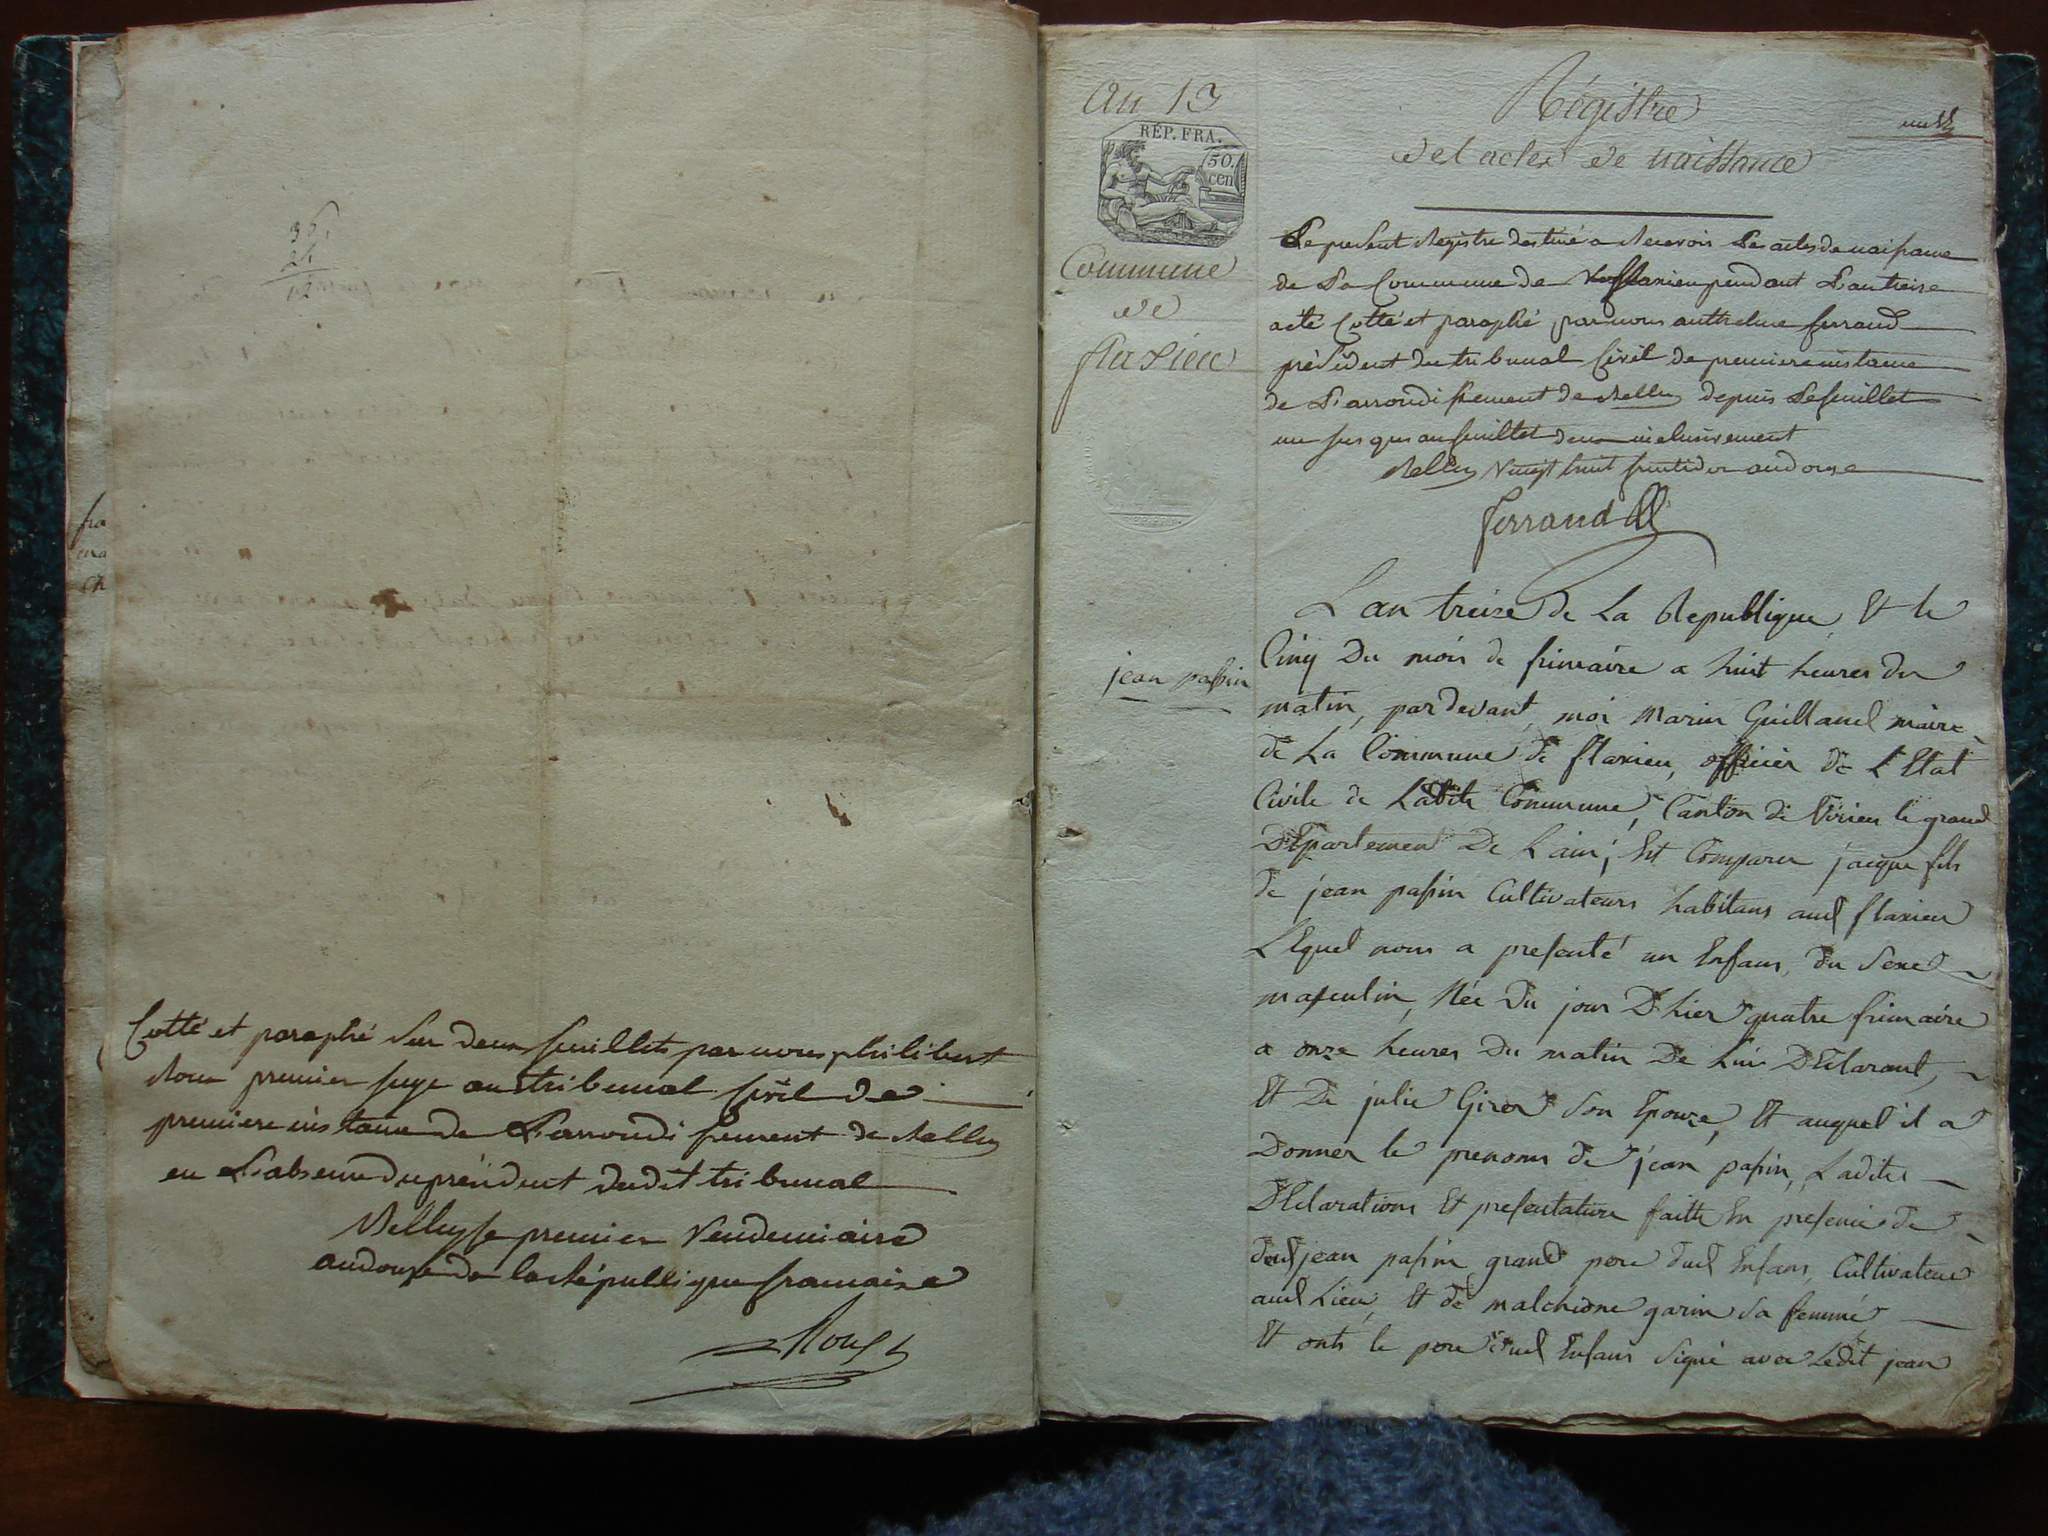 36
24
12
fra
ma
ch
Cotté et paraphé Sur deux feuillets par nous philibert
Roux premier juge au tribunal Civil de
premiere instance de L'arrondissement de Belley
en L'absence du président dudit tribunal
Belley le premier Vendemiaire
an douze de la République francaise
Roux
An 13
RÉP. FRA.
50
cen
Commune
de
flaxieu
jean passin
Régistre
des actes de naissance
un
Le present Registre destiné a Recevoir Les actes de naissance
de La Commune de flaxieu pendant L'an treize
a été Cotté et paraphé par nous anthelme ferrand
président du tribunal Civil de premiere instance
de L'arrondissement de Belley depuis Le feuillet
un jusques au feuillet deux inclusivement
Belley Vingt huit fructidor an douze
ferrand
L'an treize de La Republique Et le
Cinq Du mois de frimaire a huit heures du
matin, pardevant, moi Marin Guilland maire
de La Commune de flaxieu, officier de L'Etat
Civile de Ladite Commune, Canton de Virieu le grand
DEpartement De L'ain, Est Comparu jacque fils
de jean passin Cultivateurs habitans aud flaxieu
LEquel nous a presenté un Enfans, du Sexe
masculin, Née Du jour D'hier quatre frimaire
a onze heures Du matin De Lui DEclarant,
Et De julie Giros Son Epouze, Et auquel il a
Donner le prenoms de jean passin, Ladites
DEclarations Et presentation faitte En presence de
dud jean passin grand pere dud Enfans, Cultivateur
aud Lieu, Et de malchione garin Sa femme
Et onts le pere dud Enfans Signé avec Ledit jean